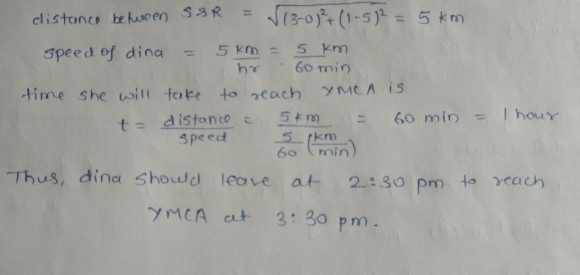 distance between S & R = √(3-0)²+(1-5)² = 5 km
speed of dina = 5 km/hr = 5 km/60 min
time she will take to reach YMCA is
t = distance/speed = 5 km/(5/60 (km/min)) = 60 min = 1 hour
Thus, dina should leave at 2:30 pm to reach
YMCA at 3:30 pm.